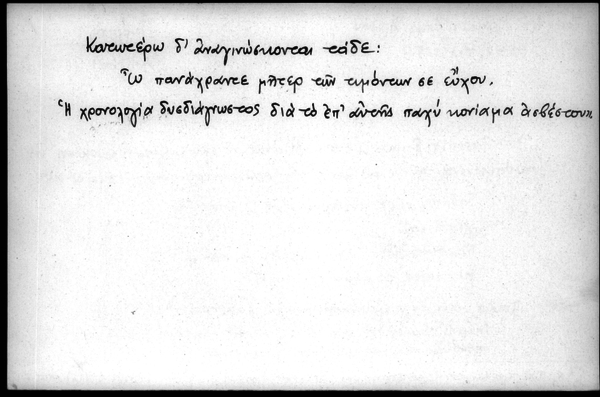 Κατωτέρω δ' ἀναγινώσκονται τάδε:
Ὦ πανάχραντε μῆτερ τῶν τιμόντων σε εὔχου.
Ἡ χρονολογία δυσδιάγνωστος διὰ τὸ ἐπ' αὐτῆς παχύ κονίαμα ἀσβέστου.